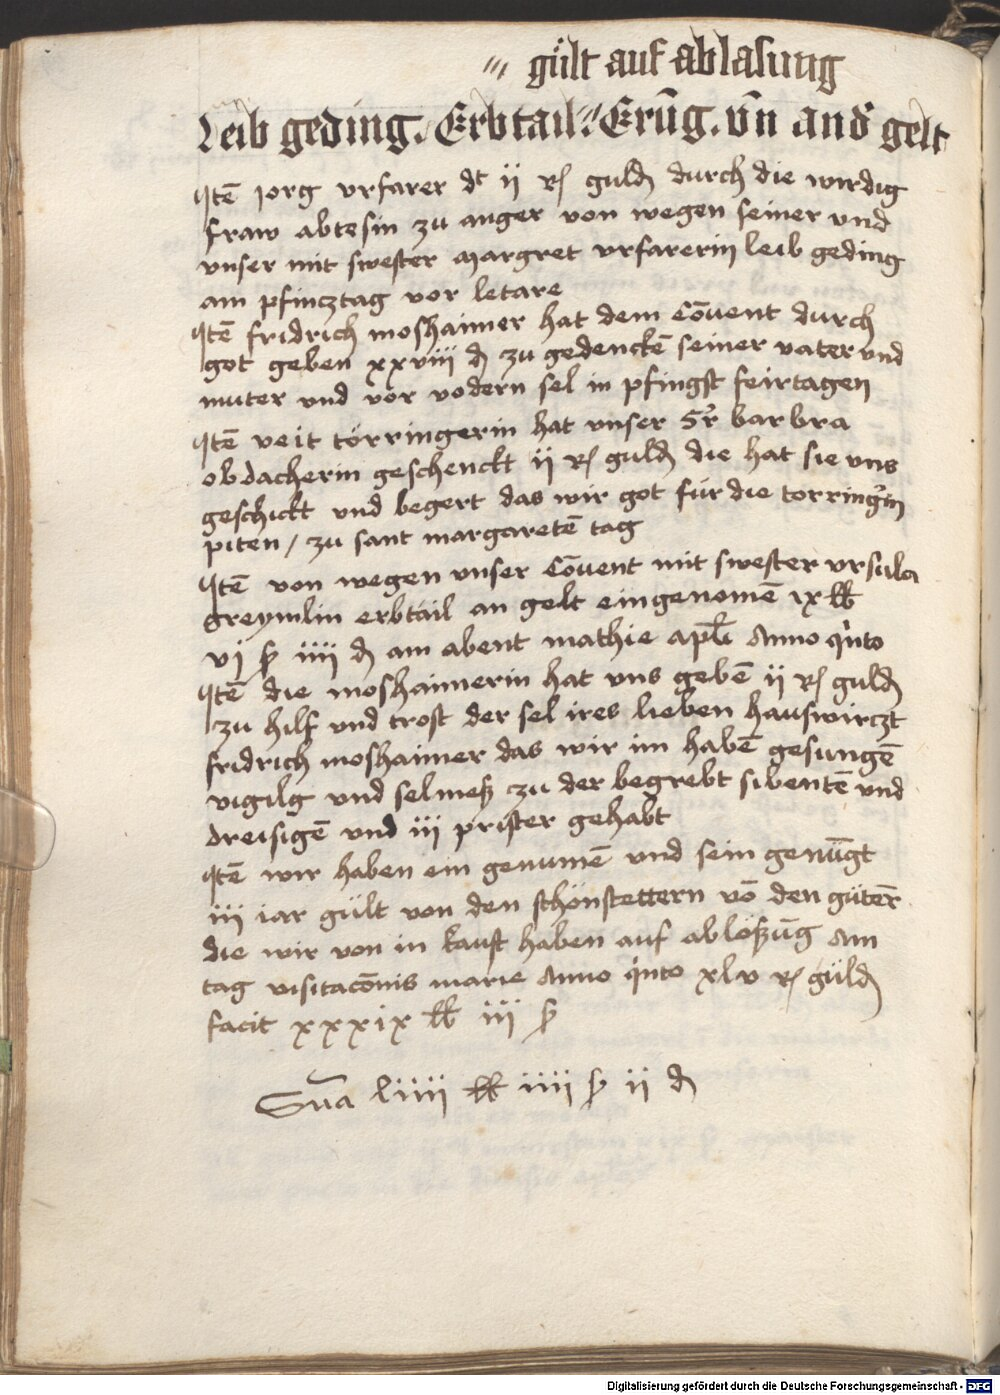 〃 gült auf ablasung
Leib geding. Erbtail〃 Erūg. vn̄ and̕ gelt
Itē Jorg vrfarer dt ij R guld durch die wirdig
fraw abtesin zu anger von wegen seiner vnd
vnser mit swester Margret vrfarerin leib geding
am pfincztag vor letare
Itē fridrich moshaimer hat dem Cōuent durch
got geben xxviii d zu gedenckē seiner vater vnd
muter vnd vor vodern sel in pfingst feirtagen
Itē veit törringerin hat vnser Sr barbra
obdacherin geschenckt ij R guld die hat sie vns
geschickt vnd begert das wir got für die torringin
piten / zu sant margaretē tag
Itē von wegen vnser Cōuent mit swester vrsula
greymlin erbtail an gelt eingenomē ix lb
vj ß iiii d am abent mathie apl̄i Anno q̇nto
Itē die moshaimerin hat vns gebē ij R guld
zu hilf vnd trost der sel ires lieben hauswirczt
fridrich moshaimer das wir im habē gesungē
vigilg vnd selmeß zu der begrebt sibentē vnd
dreisigē vnd iii prister gehabt
Itē wir haben ein genumē vnd sein genūgt
iii iar gült von den schönstettern vō den güter̄
die wir von in kauft haben auf ablößūg Am
tag visitacōnis marie Anno q̇nto xlv R güld
facit xxxix lb iii ß
Sūa liiii lb iiii ß ii d
Digitalisierung gefördert durch die Deutsche Forschungsgemeinschaft - DFG